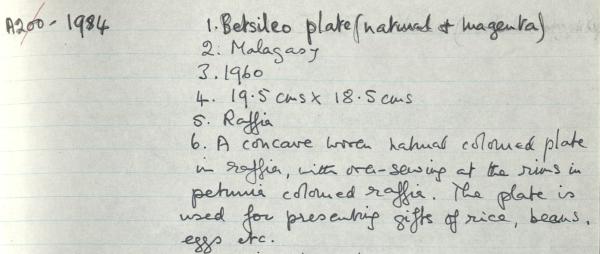 A200 - 1984
1. Betsileo plate (natural + magenta)
2. Malagasy
3. 1960
4. 19.5 cms x 18.5 cms
5. Raffia
6. A concave woven natural coloured plate
in raffia, with over-sewing at the rims in
petunia coloured raffia. The plate is
used for presenting gifts of rice, beans,
eggs etc.